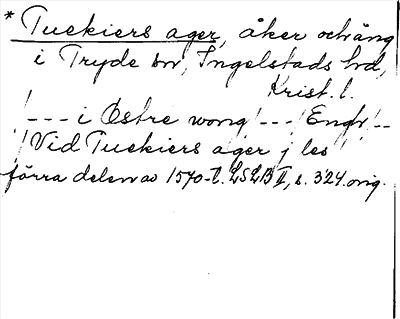 * Tuekiers ager, åker och äng
i Tryde sn, Ingelstads hd,
Krist. l.
/--- i Østre wong/ --- /Engh/--
/Vid Tuekiers ager j les
förra delen av 1570-t. LSLB II, s. 324. orig.